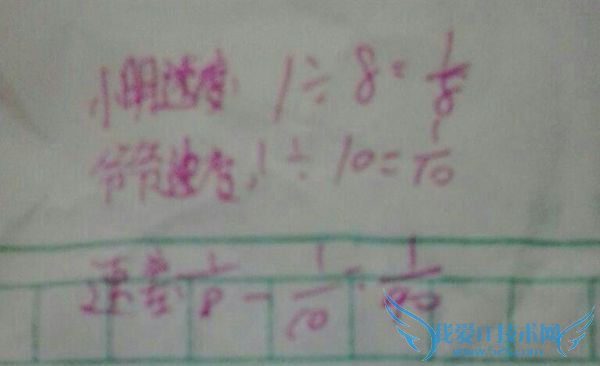 小明速度 1÷8=1/8
爷爷速度,1÷10=1/10
速差 1/8-1/10=1/40
我爱IT技术网